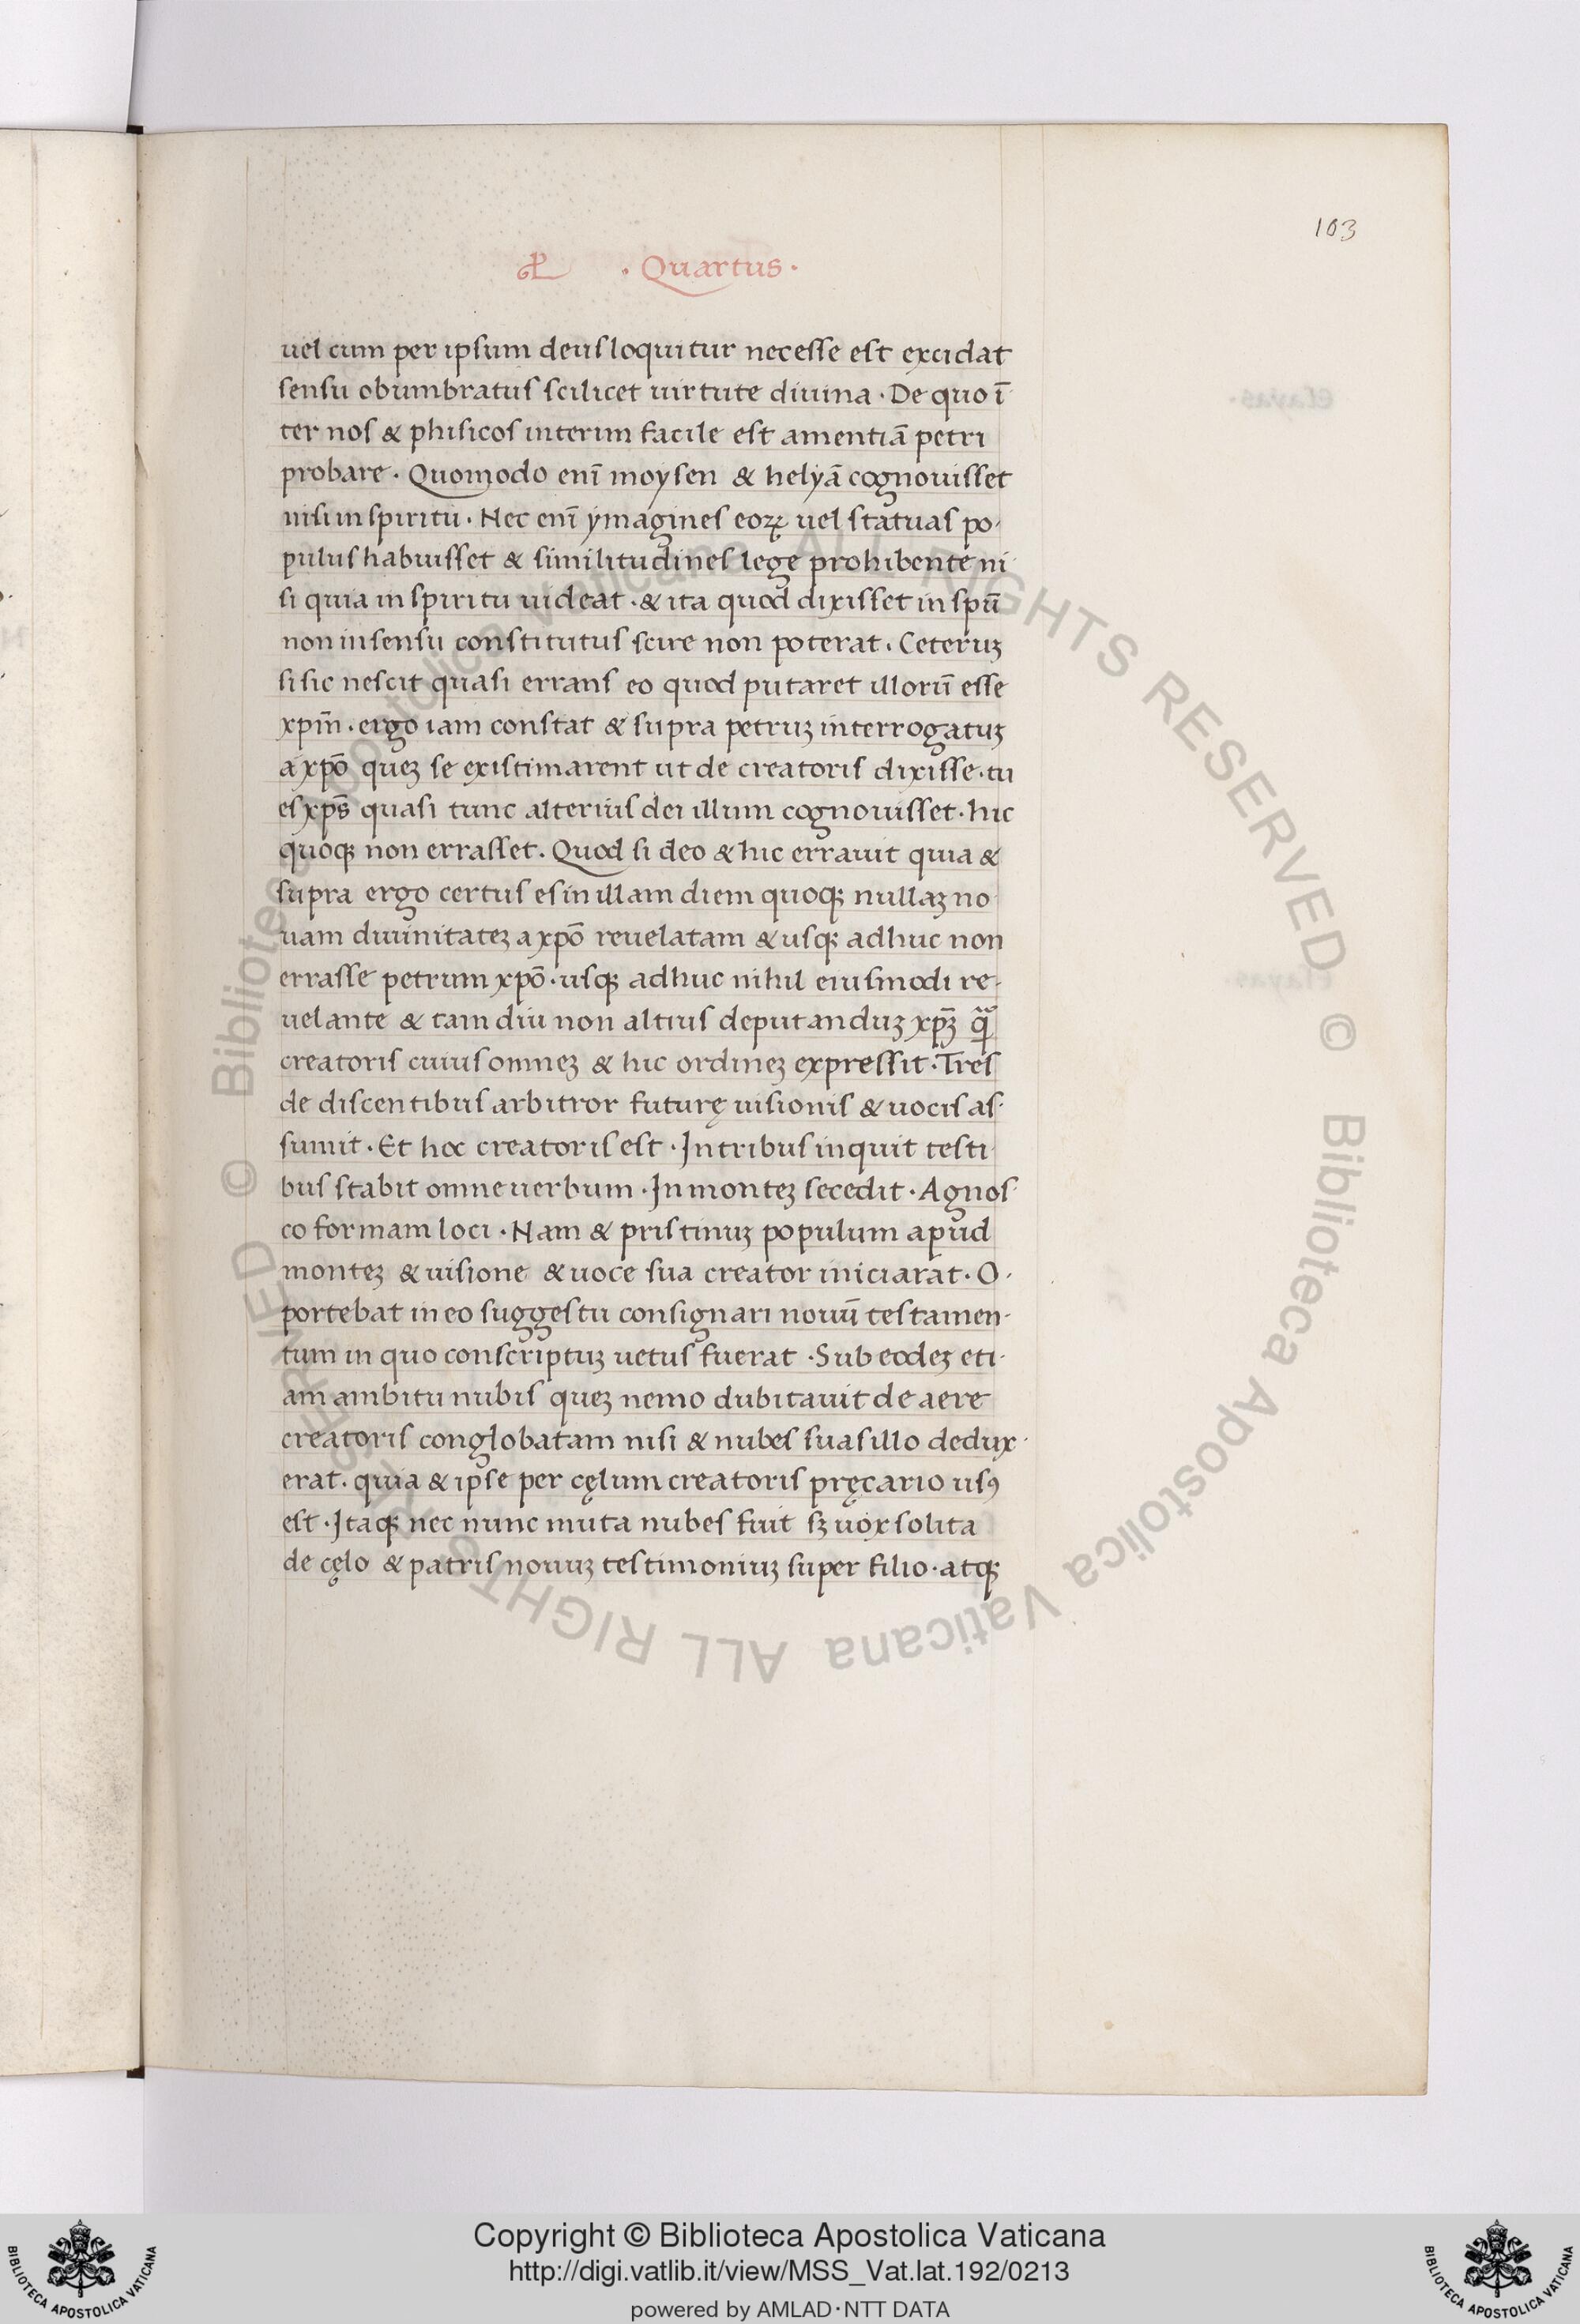 103
· Quartus ·
uel cum per ipsum deus loquitur necesse est excidat
sensu obumbratus scilicet uirtute diuina · De quo ī
ter nos & phisicos interim facile est amentiā petri
probare · Quomodo enī moysen & helyā cognouisset
nisi in spiritu · Nec enī ymagines eoꝝ uel statuas po-
pulus habuisset & similitudines lege prohibente ni
si quia in spiritu uideat · & ita quod dixisset in spū
non in sensu constitutus scire non poterat · Ceteruꝫ
si sic nescit quasi errans eo quod putaret illorū esse
xpm̄ · ergo iam constat & supra petruꝫ interrogatuꝫ
a xpō queꝫ se existimarent ut de creatoris dixisse · tu
es xps̄ quasi tunc alterius dei illum cognouisset · hic
quoqꝫ non errasset · Quod si deo & hic errauit quia &
supra ergo certus es in illam diem quoqꝫ nullaꝫ no
uam diuinitateꝫ a xpō reuelatam & usqꝫ adhuc non
errasse petrum xpō · usqꝫ adhuc nihil eiusmodi re-
uelante & tam diu non altius deputanduꝫ xpꝫ̄ qᷓ
creatoris cuius omneꝫ & hic ordineꝫ expressit · Tres
de discentibus arbitror futurę uisionis & uocis as-
sumit · Et hoc creatoris est · In tribus inquit testi
bus stabit omne uerbum · In monteꝫ secedit · Agnos-
co formam loci · Nam & pristinuꝫ populum apud
monteꝫ & uisione & uoce sua creator iniciarat · O-
portebat in eo suggestu consignari nouū testamen-
tum in quo conscriptuꝫ uetus fuerat · Sub eodeꝫ eti-
am ambitu nubis queꝫ nemo dubitauit de aere
creatoris conglobatam nisi & nubes suas illo dedux-
erat · quia & ipse per cęlum creatoris pręcario usꝰ
est · Itaqꝫ nec nunc muta nubes fuit sꝫ uox solita
de cęlo & patris nouuꝫ testimoniuꝫ super filio · atqꝫ
© Biblioteca Apostolica Vaticana ALL RIGHTS RESERVED
© Biblioteca Apostolica Vaticana ALL RIGHTS RESERVED
BIBLIOTECA APOSTOLICA VATICANA
Copyright © Biblioteca Apostolica Vaticana
http://digi.vatlib.it/view/MSS_Vat.lat.192/0213
powered by AMLAD·NTT DATA
BIBLIOTECA APOSTOLICA VATICANA